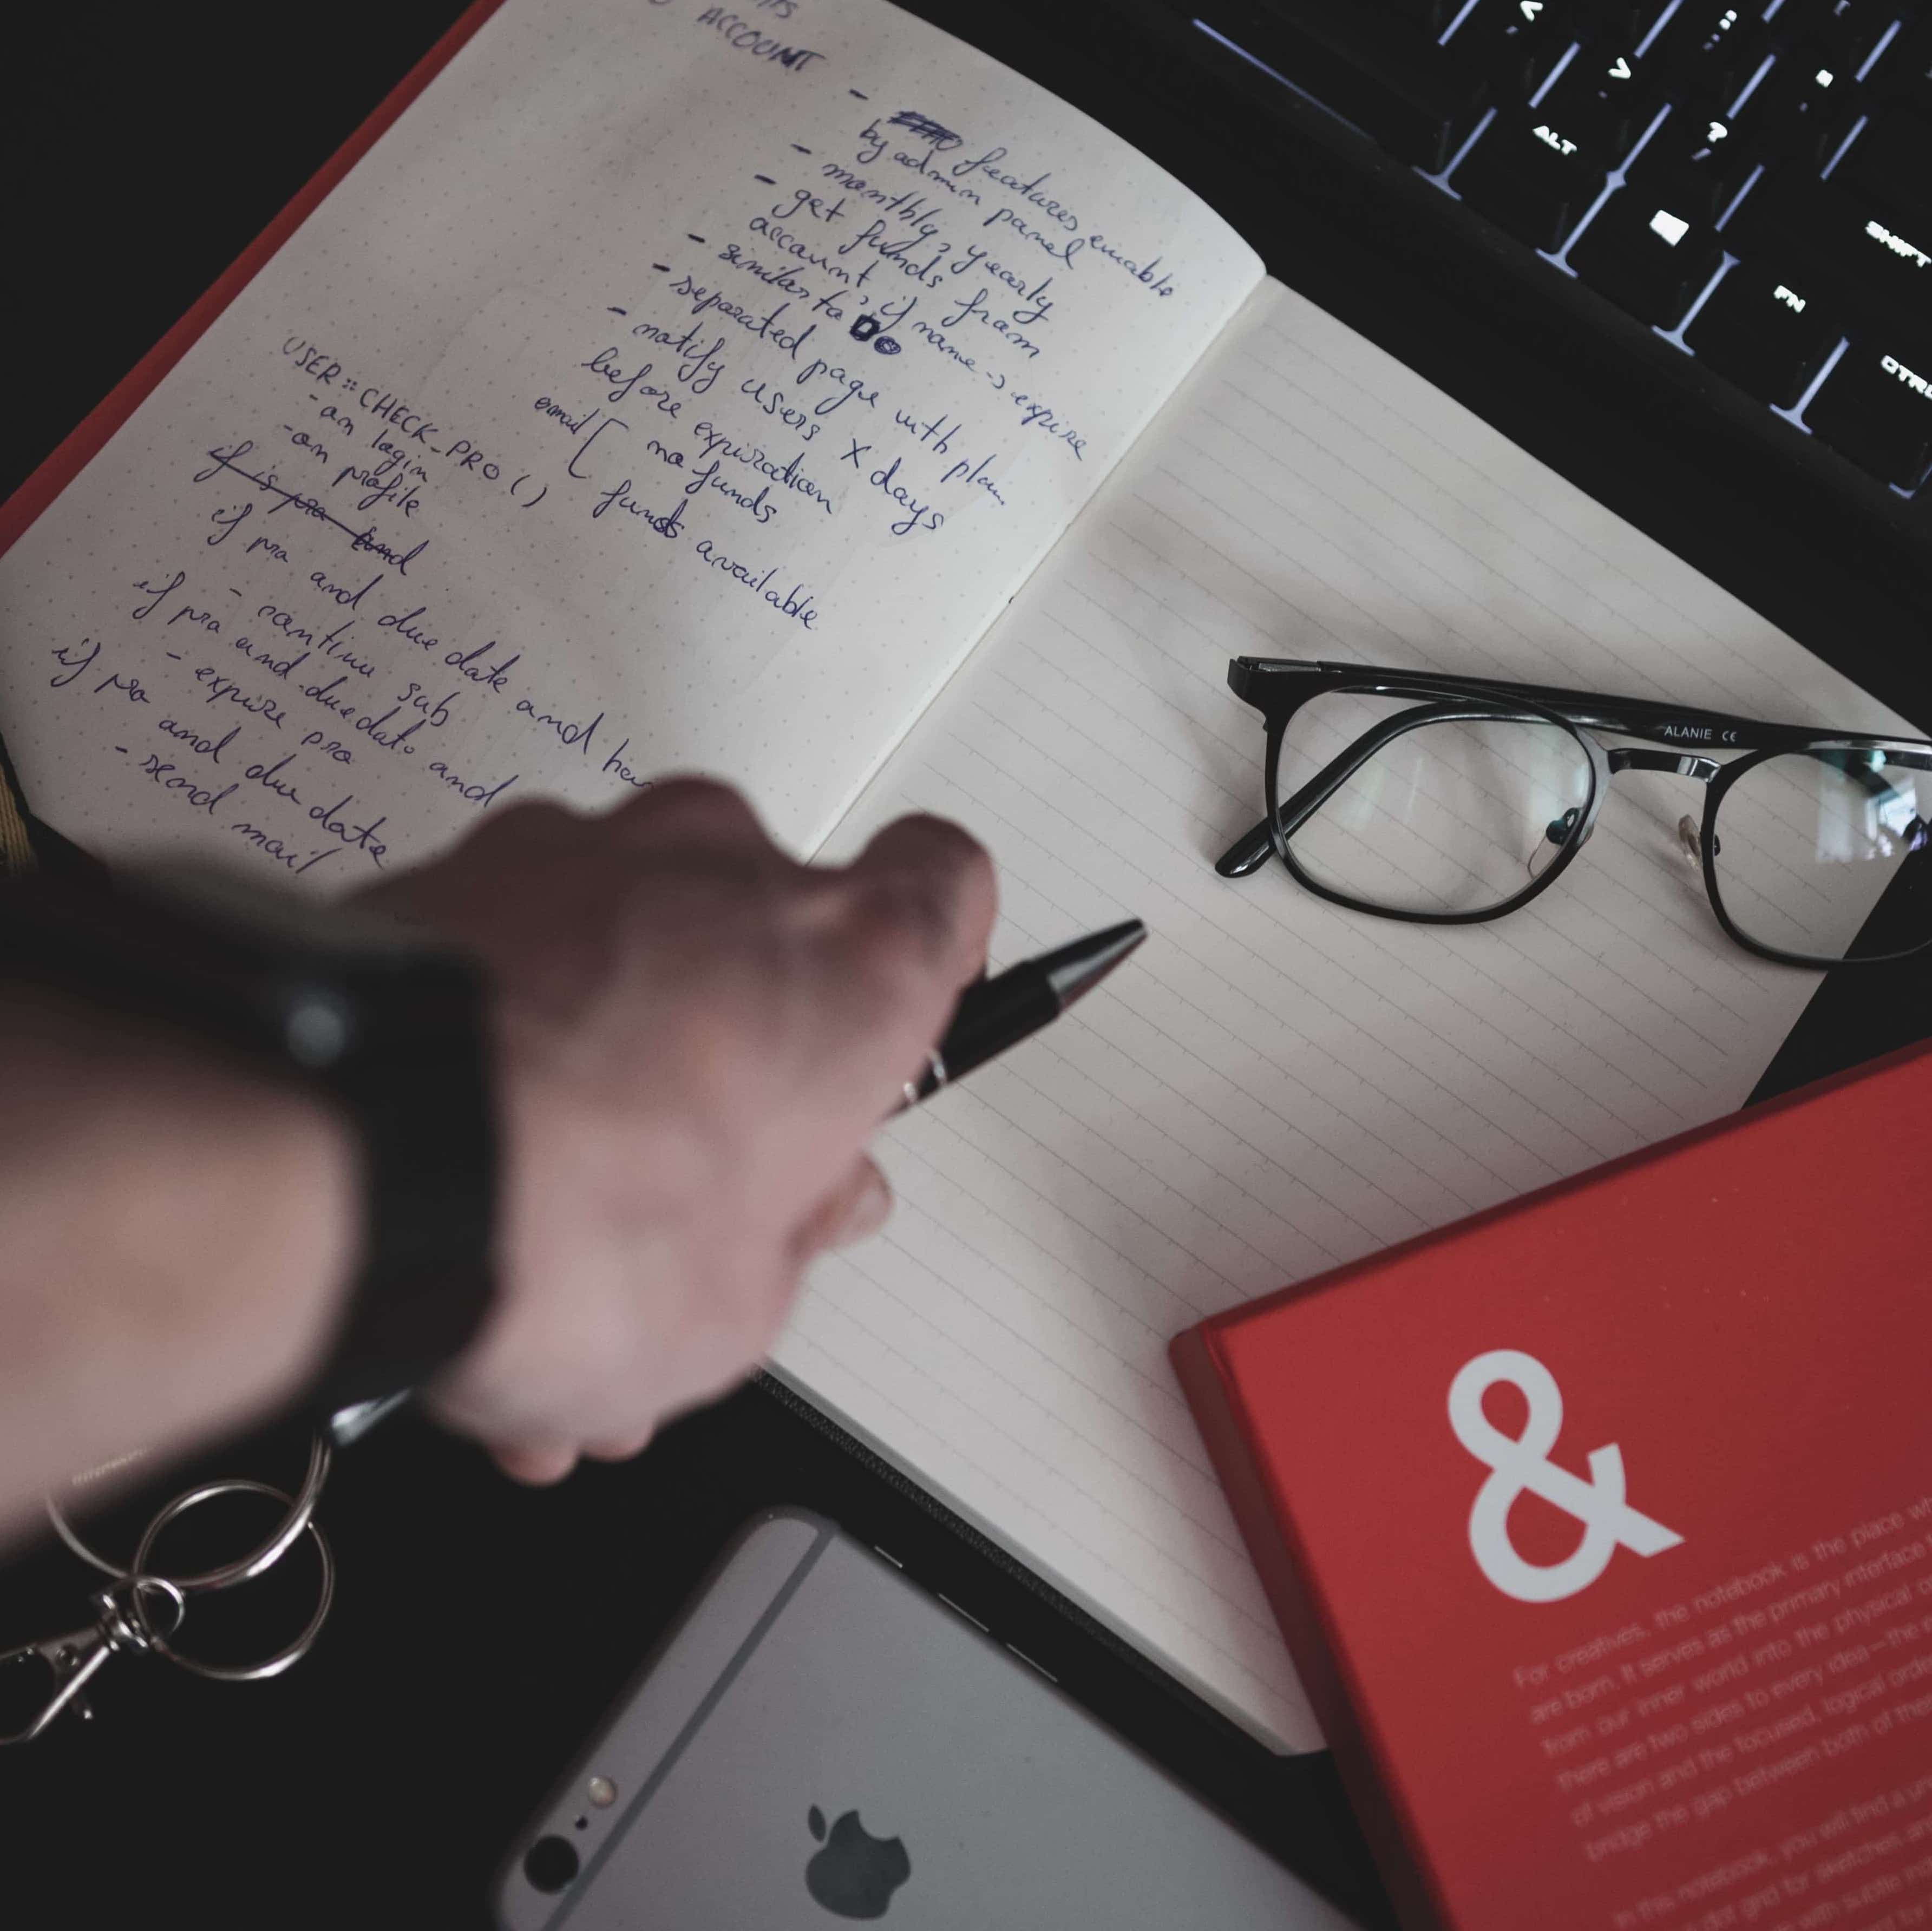 ACCOUNT
- features enable
by admin panel
- monthly, yearly
- get funds from
account, if name -> expire
- similar to DO
- separated page with plan
- notify users X days
before expiration
email [ no funds
funds available
USER::CHECK_PRO()
- on login
- on profile
if is pro and
if pro and due date and
- continu sub
if pro and due date and
- expire pro
if pro and due date
- send mail
<
>
?
ALT
SHIFT
FN
CTRL
ALANIE CE
&
For creatives, the notebook is the place
are born. It serves as the primary interface
from our inner world into the physical
there are two sides to every idea—the
of vision and the focused, logical order
bridge the gap between both of
In this notebook, you will find a
dot grid for sketches
with subtle